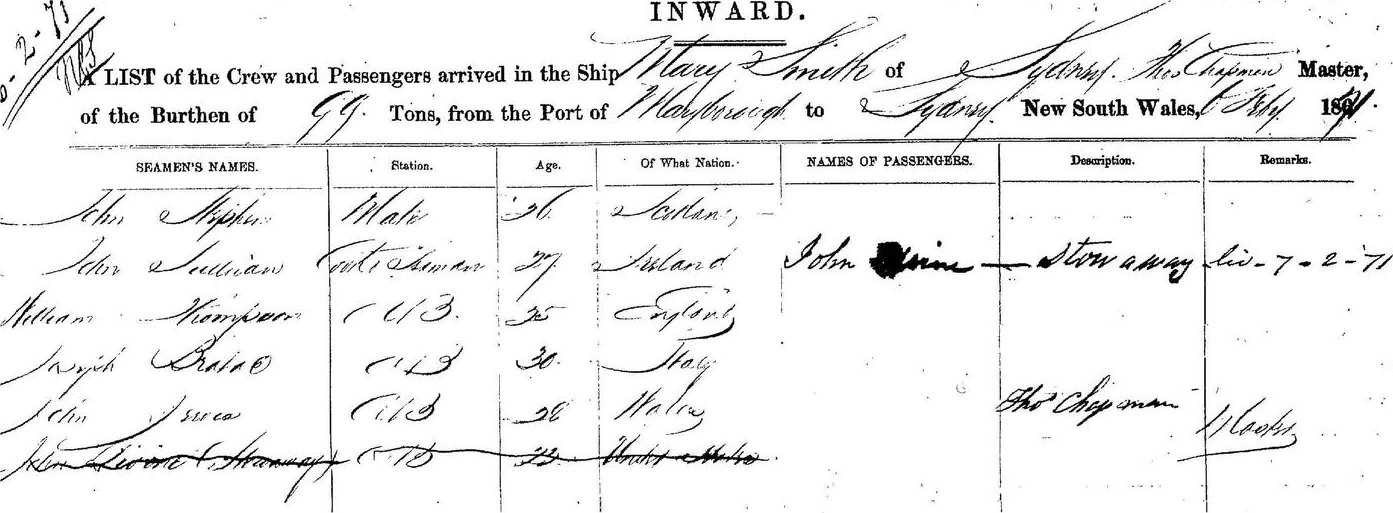 INWARD.
-2-71
A LIST of the Crew and Passengers arrived in the Ship Mary Smith of Sydney. Thos Chapman Master,
of the Burthen of 99. Tons, from the Port of Maryborough to Sydney New South Wales, 6 Feby 1871
SEAMEN'S NAMES. Station. Age. Of What Nation. NAMES OF PASSENGERS. Description. Remarks.
John Stephen Mate 26 Scotland
John Sullivan 27 Ireland John — Stow away - 7 - 2 - 71
William Thompson AB. 25 England
Joseph AB 30. Italy
John AB 28 Wales Thos Chapman
John (Stowaway) AB 22 United States